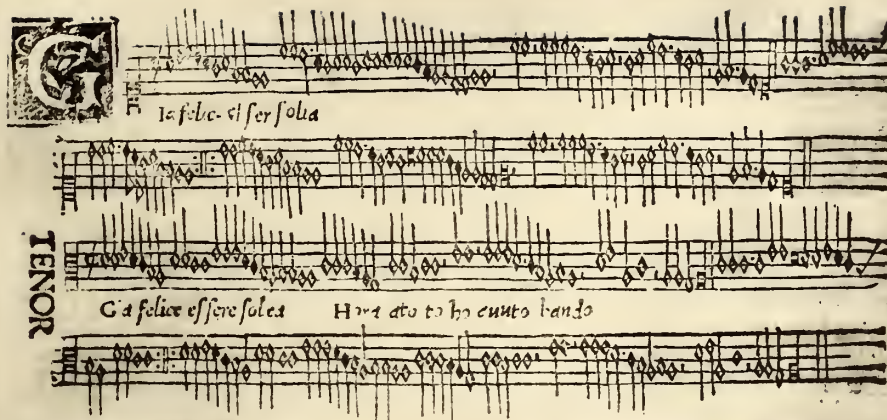 G
Ia felice esser solia
TENOR
Gia felice essere solea Hora ato to ho euuto bando